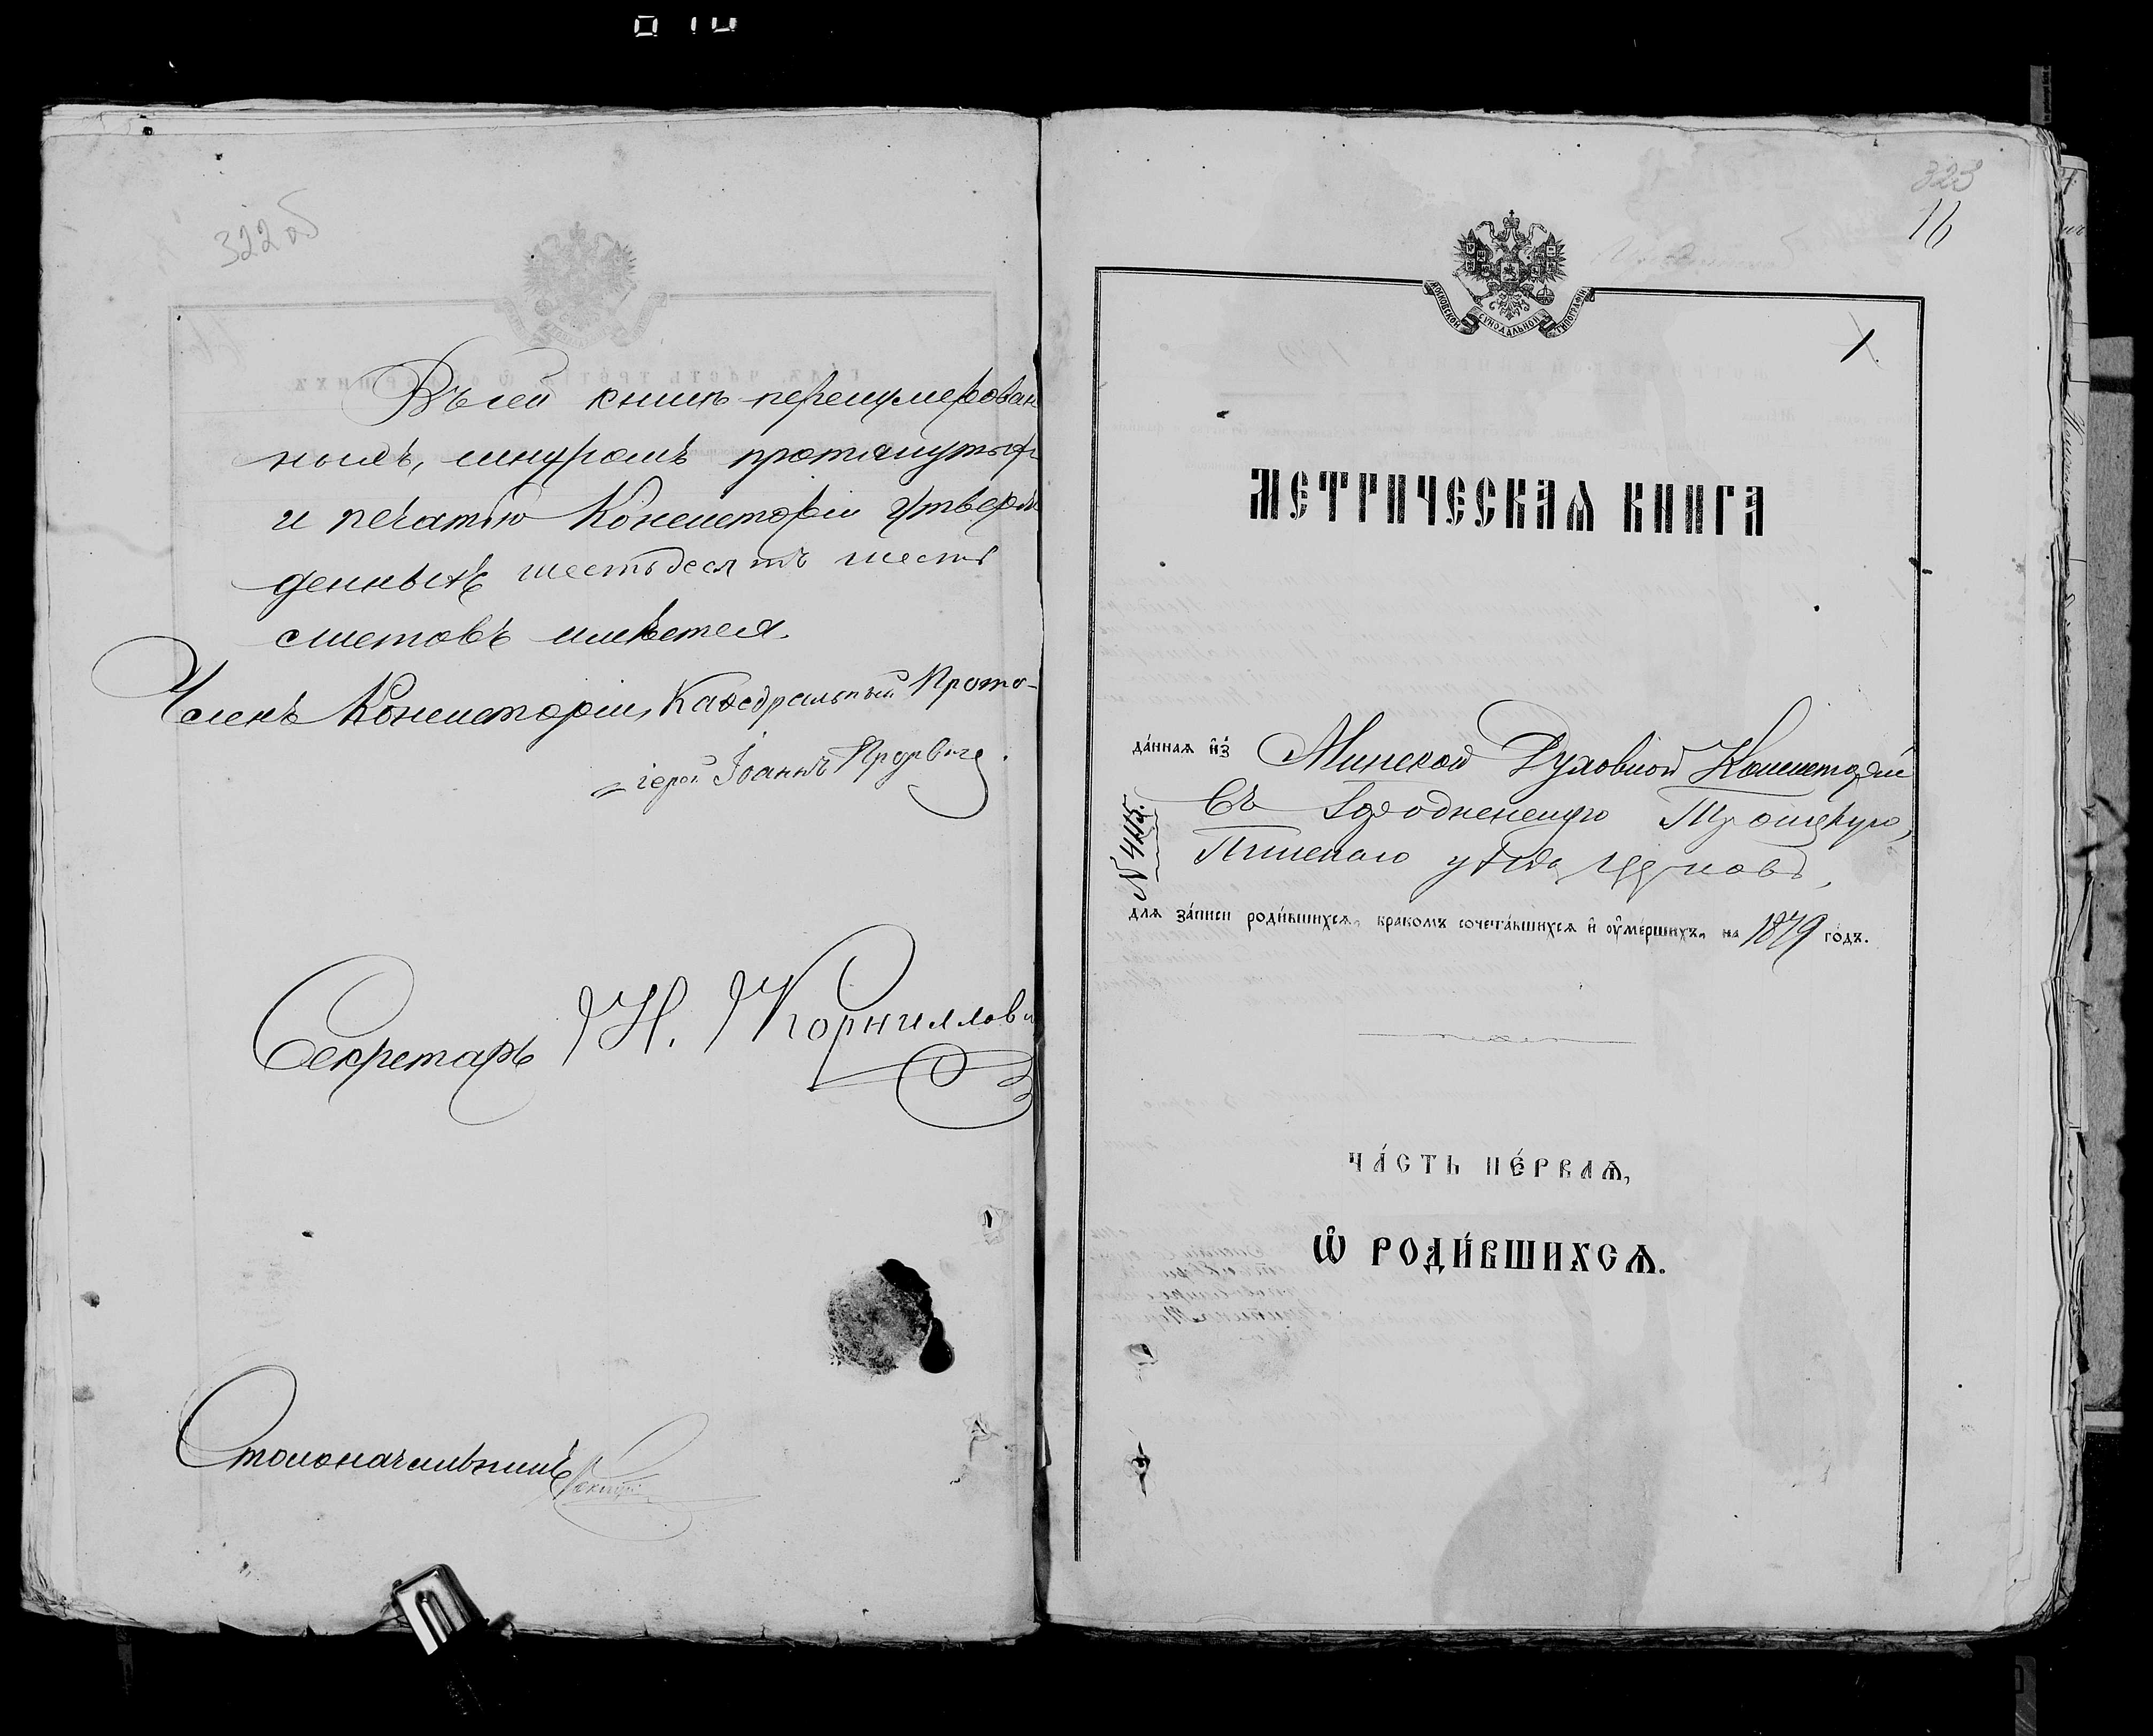 322 об
Въ сей книгѣ перенумерован
ныхъ, шнуромъ протянутыхъ
и печатью Консисторіи утверж
денныхъ шестьдесятъ шесть
листовъ имѣется.
Членъ Консисторіи, Каѳедральный Прото-
=іерей Іоаннъ
Секретарь Н. Корниллов
Столоначальникъ
323
16
МОСКОВСКОЙ СѴНОДАЛЬНОЙ ТИПОГРАФІИ
1.
МЕТРИЧЕСКАѦ КНИГА
да́ннаѧ и҆з̾ Минской Духовной Консисторіи
въ Городненскую Троицкую,
Пинскаго уѣзда церковь,
№ 4115.
длѧ за́писи роди́вшихсѧ, бракомъ сочета́вшихсѧ и҆ ᲂу҆ме́ршихъ, на 1879 го́дъ.
ЧА́СТЬ ПЕ́РВАѦ,
Ѡ҆ РОДИ́ВШИХСѦ.